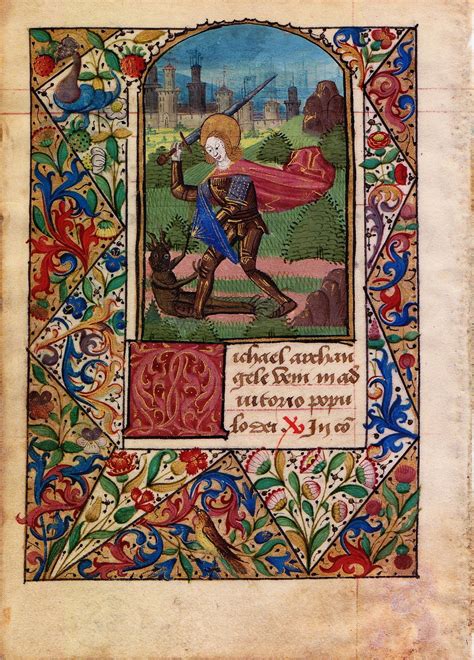 Michael archan
gele veni in ad
iutorio popu
lo dei X In cō